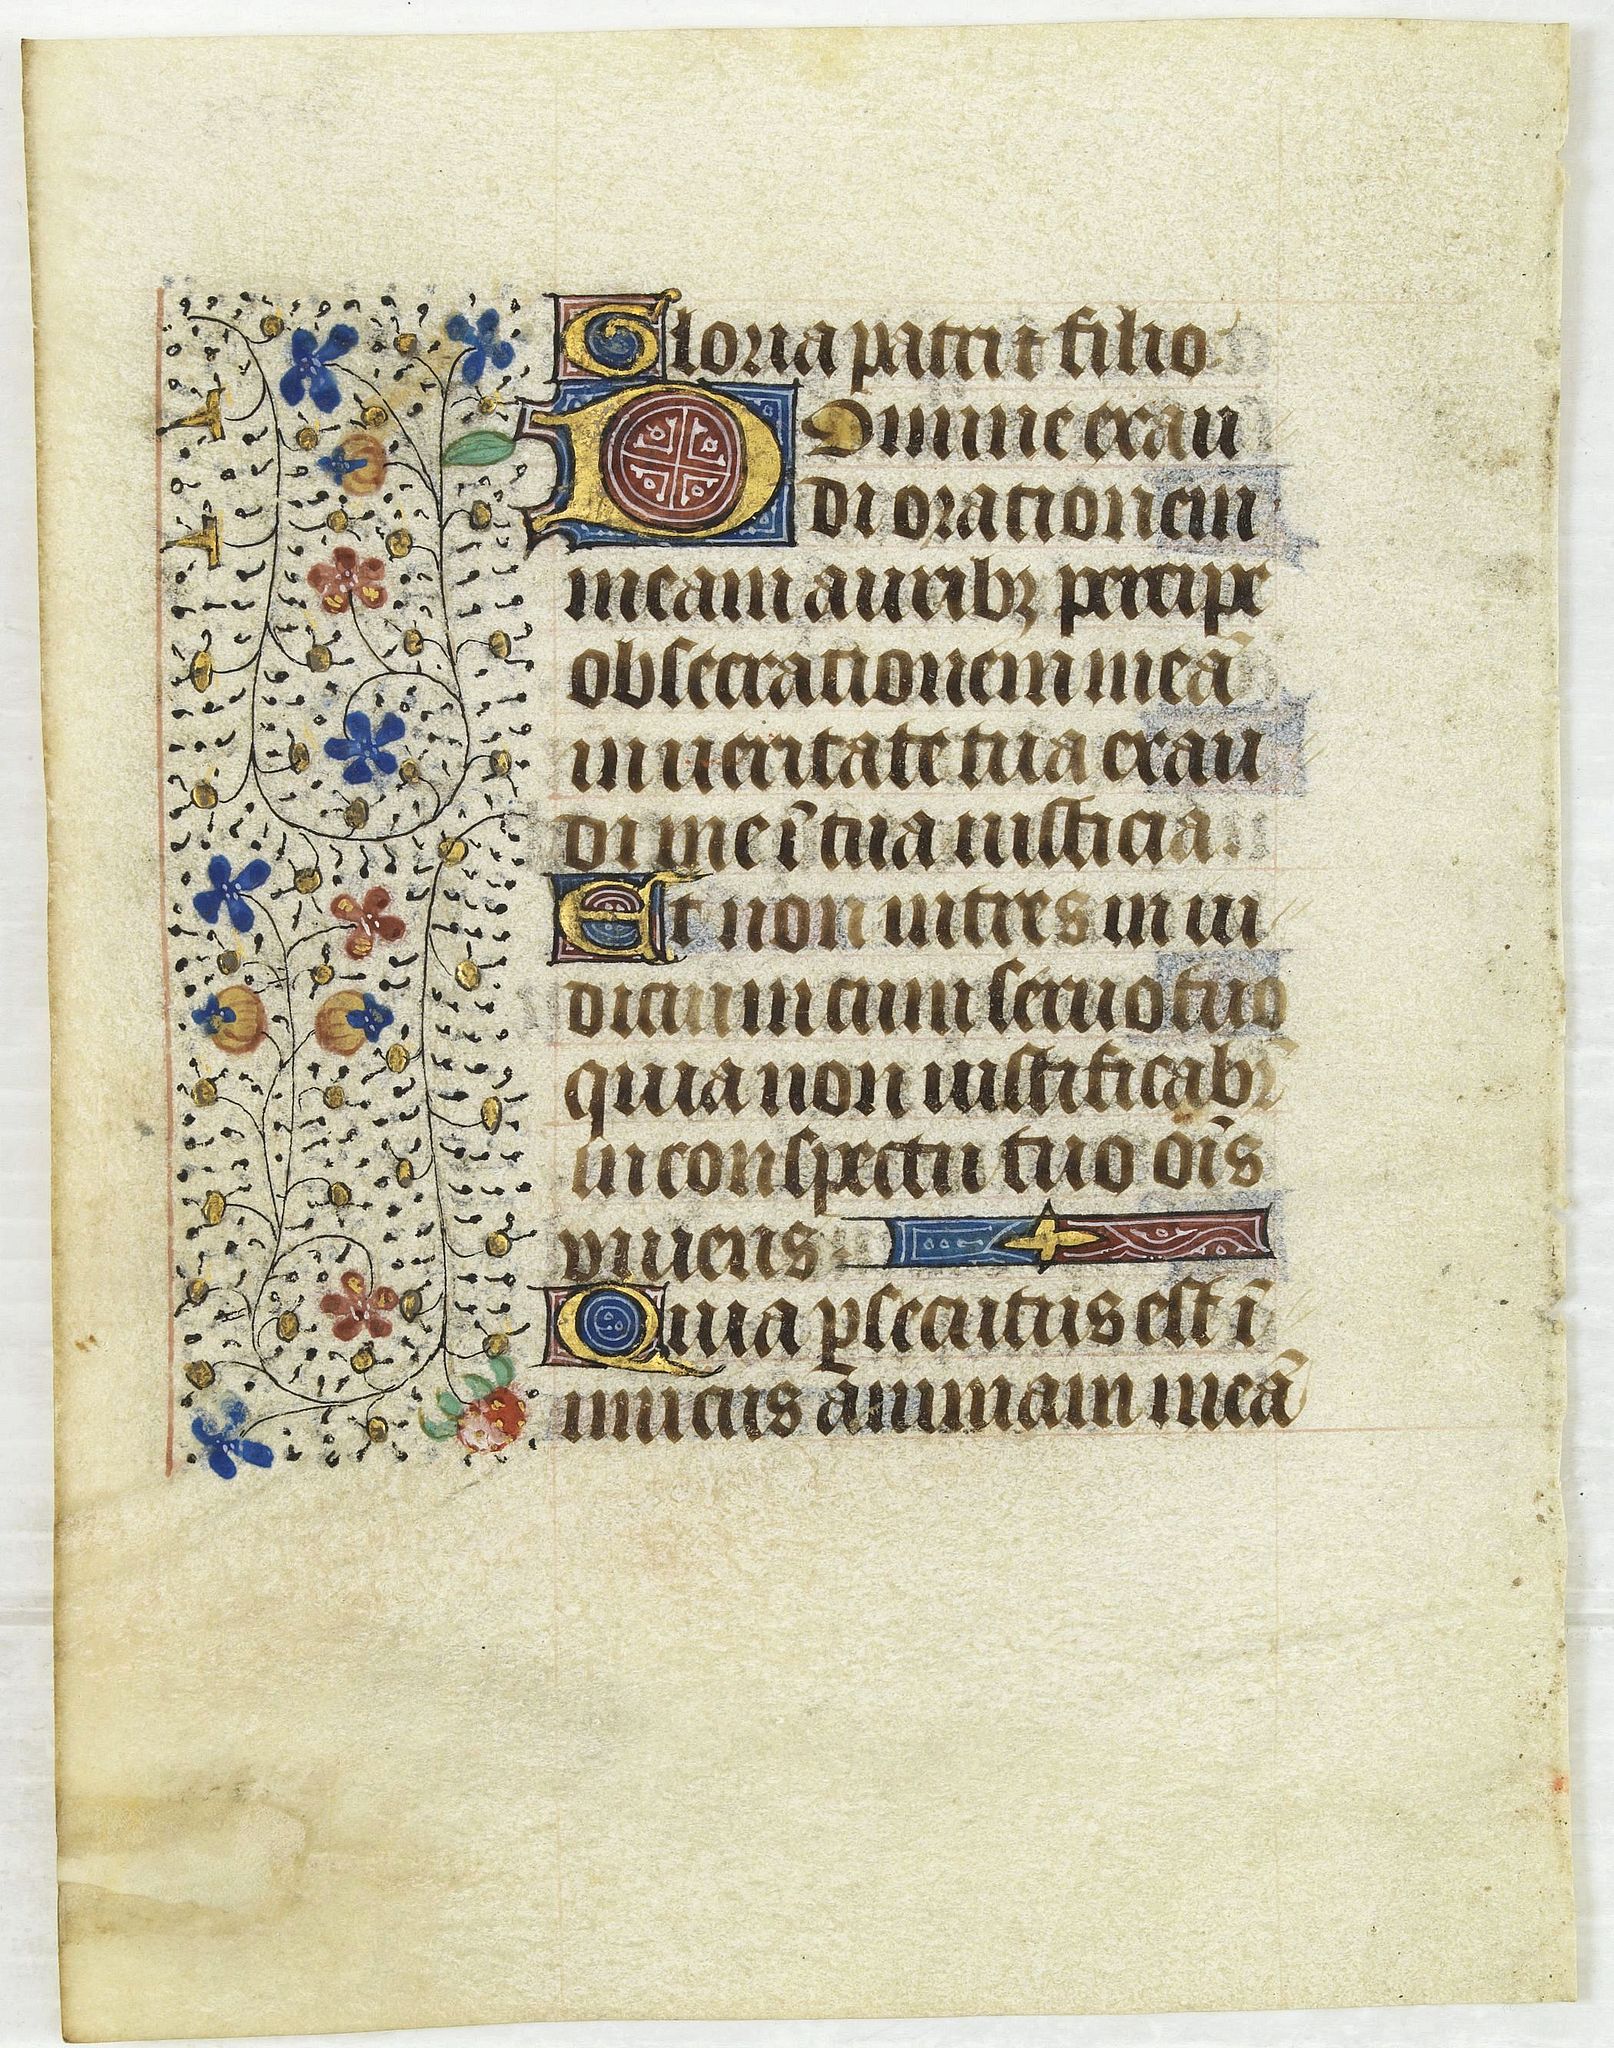 Gloria patri ⁊ filio
Domine exau
di orationem
meam auribꝫ percipe
obsecrationem meā
in ueritate tua exau
di me ī tua iusticia.
Et non intres in iu
dicium cum seruo tuo
quia non iustificabr̄
in conspectu tuo oīs
viuens
Quia ꝑsecutus est ī
imicus animam meā